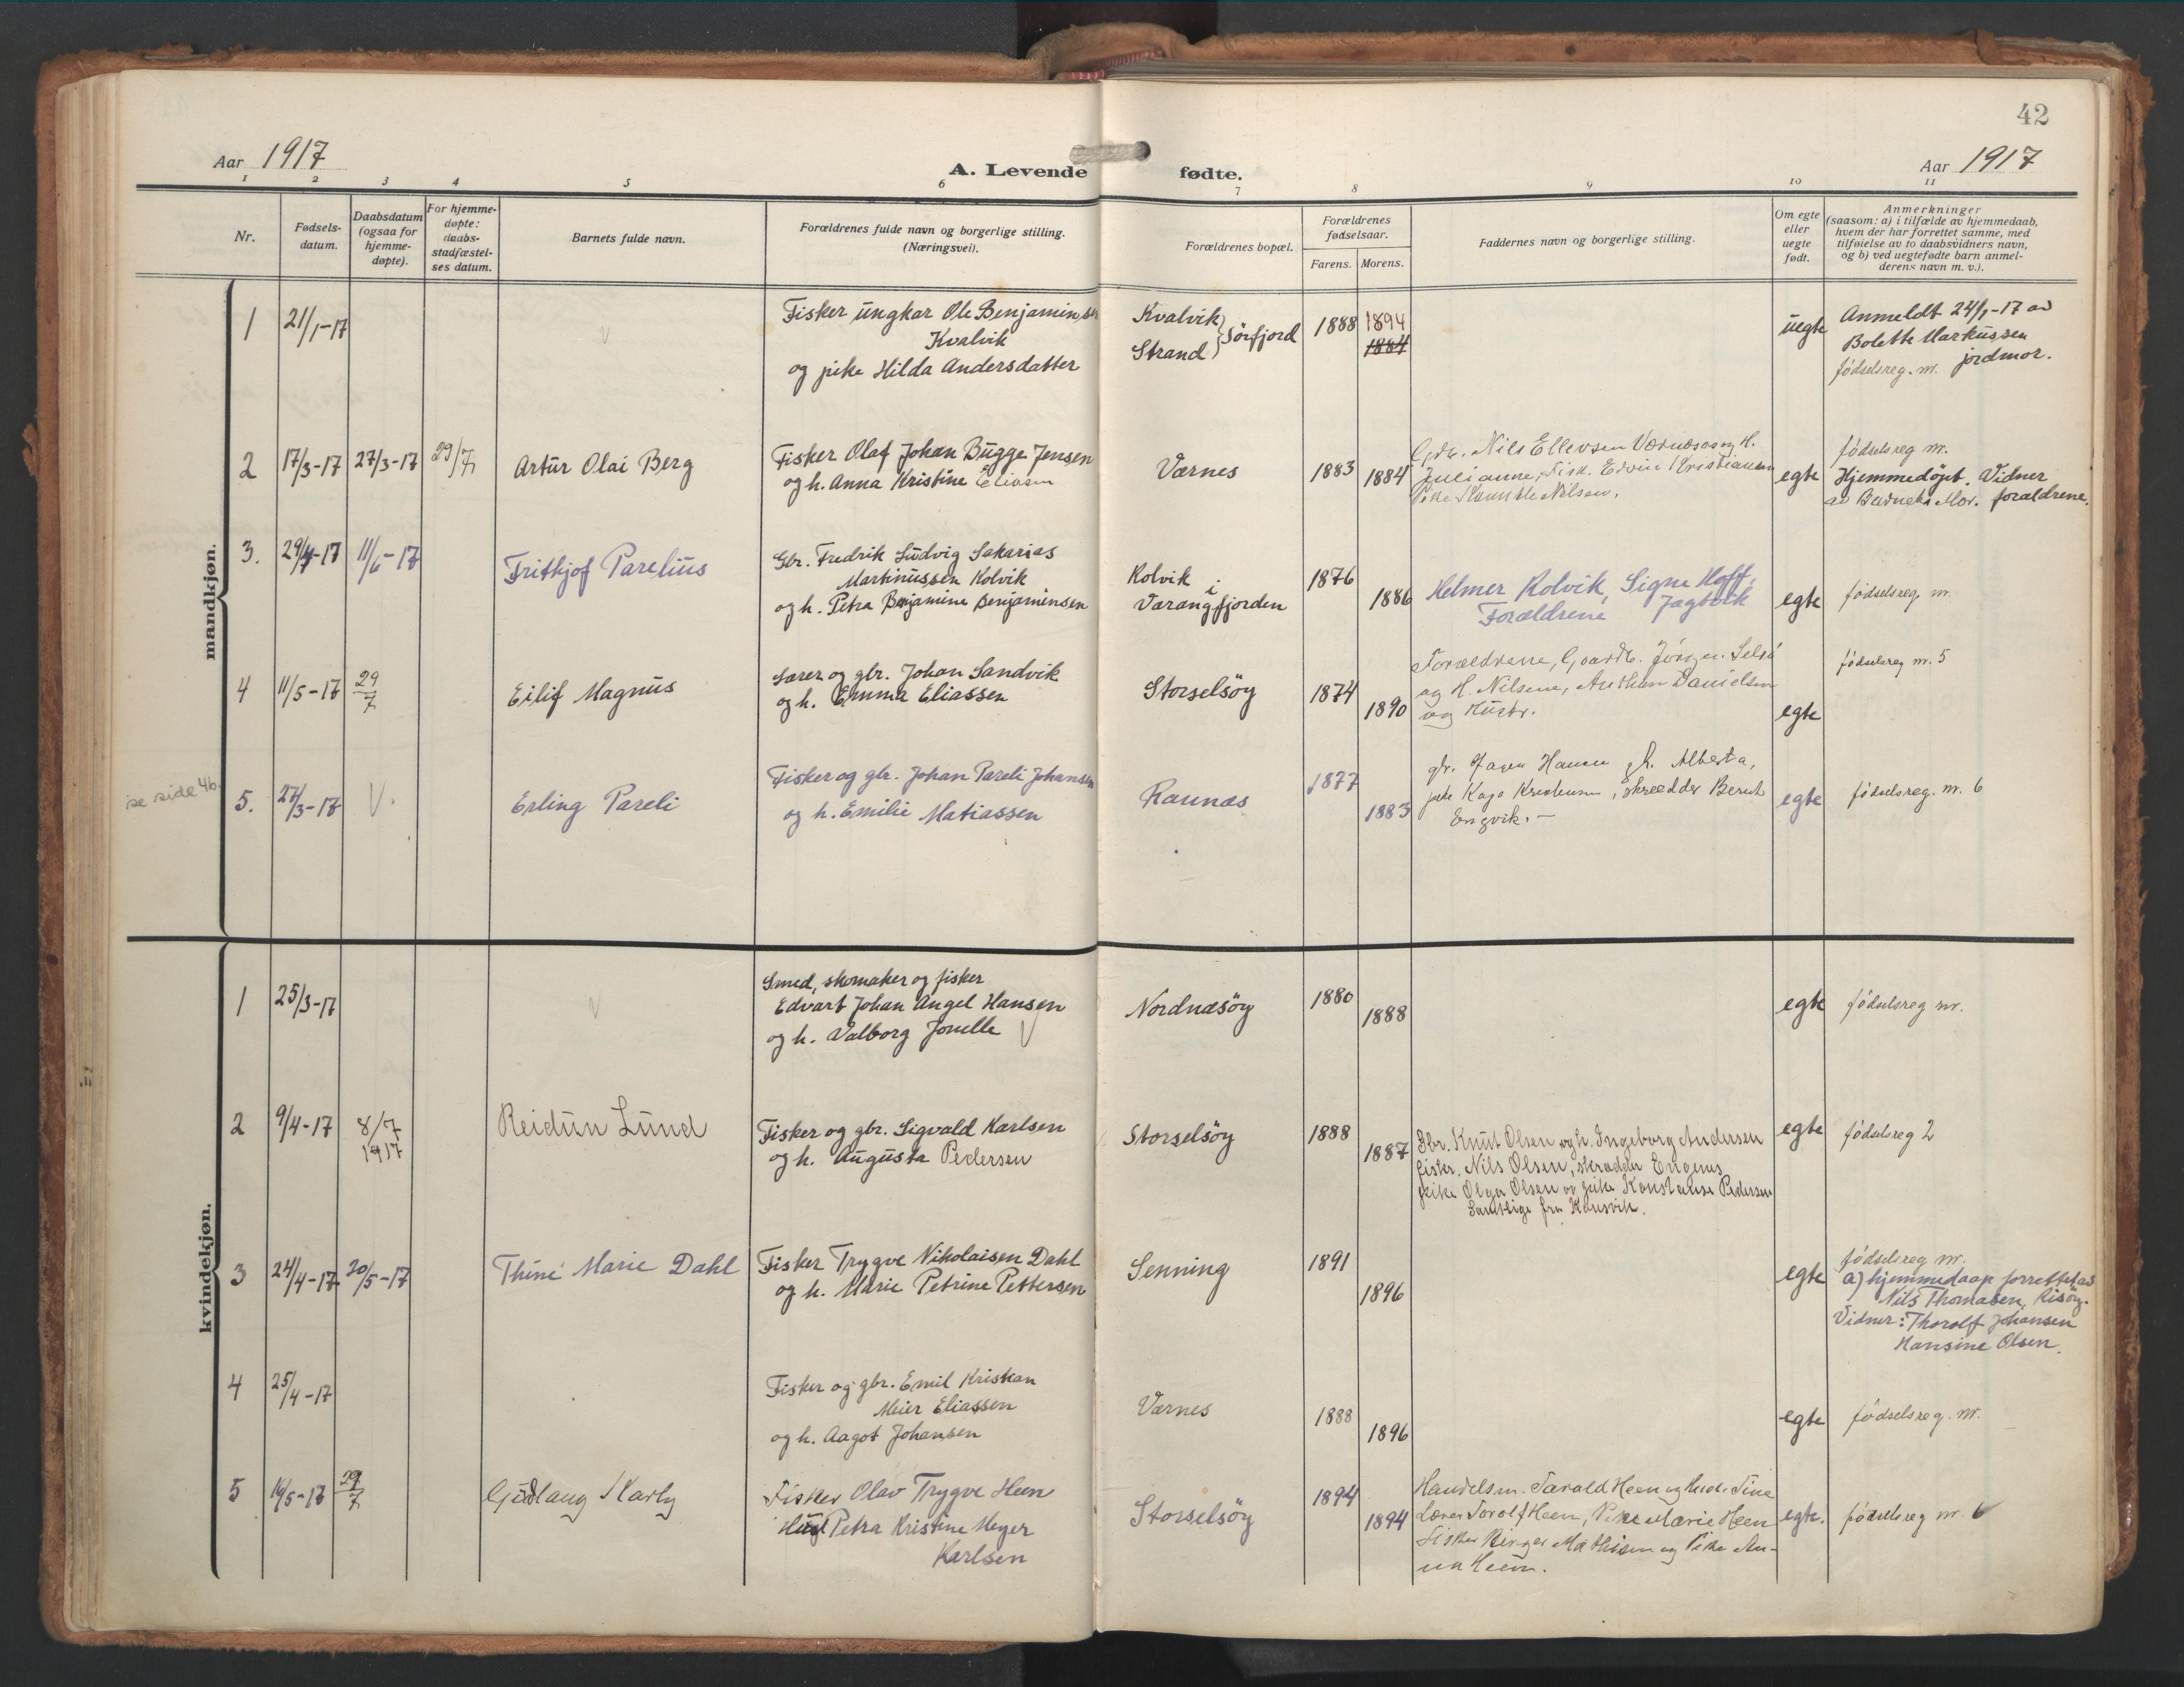 42
Aar 1917
A. Levende fødte.
Aar 1917
1 2 3 4 5 6 7 8 9 10 11
Nr.
Fødsels-
datum.
Daabsdatum
(ogsaa for
hjemme-
døpte).
For hjemme-
døpte:
daabs-
stadfæstel-
ses datum.
Barnets fulde navn.
Forældrenes fulde navn og borgerlige stilling.
(Næringsvei).
Forældrenes bopæl.
Forældrenes
fødselsaar.
Farens. Morens.
Faddernes navn og borgerlige stilling.
Om egte
eller
uegte
født.
Anmerkninger
(saasom: a) i tilfælde av hjemmedaab,
hvem der har forrettet samme, med
tilføielse av to daabsvidners navn,
og b) ved uegtefødte barn anmel-
derens navn m. v.).
mandkjøn.
1 21/1-17
Fisker ungkar Ole Benjaminsen
Kvalvik
og pike Hilda Andersdatter
Kvalvik
Strand } Sörfjord
1888 1894
1884
uegte
Anmeldt 24/1-17 av
Bolette Markussen
jordmor.
födselsreg. nr.
2 17/3-17 27/3-17 29/7
Artur Olai Berg
Fisker Olaf Johan Bugge Jensen
og h. Anna Kristine Eliasen
Værnes
1883 1884
Nils Ellevsen Værnes og H.
Julianne, Fisk. Edvin Kristiansen
Pike Nilsen.
egte
födselsreg nr.
Hjemmedöpt. Vidner
av Barnets Mor. forældrene.
3. 29/4-17 11/6-17
Frithjof Parelius
Gbr. Fredrik Ludvig Sakarias
Martinussen Kolvik
og h. Petra Benjamine Benjaminsen
Kolvik
i
Værangfjorden
1876 1886
Helmer Kolvik, Signe Hoff,
Forældrene Jægtvik
egte
födselsreg nr.
4 11/5-17 29/7
Eilif Magnus
Lærer og gbr. Johan Sandvik
og h. Emma Eliassen
Storselsöy
1874 1890
Forældrene, Gaardb. Jörgen Selsö
og H. Nilsine, Anthon Danielsen
og Hustr.
egte
födselsreg nr. 5
se side 46.
5. 27/3-17 V.
Erling Pareli
Fisker og gbr. Johan Pareli Johansen
og h. Emilie Matiassen
Raunes
1877 1883
gbr. Hansen h. Alberta,
pike Kaja skredder Bernt
Engvik.-
egte
födselsreg. nr. 6
kvindekjøn.
1 25/3-17
Smed, skomaker og fisker
Edvart Johan Angel Hansen
og h. Valborg Jonelle V
Nordnæsöy
1880 1888
egte
födselsreg nr.
2 9/4-17 8/7
1917
Reidun Lund
Fisker og gbr. Sigvald Karlsen
og h. Augusta Pedersen
Storselsöy
1888 1887
Gbr. Knut Olsen og h. Ingeborg Andersen
fisker. Nils Olsen, skrædder Eugenus
pike Olga Olsen og pike Konstanse Pedersen
Samtlige fra Kansvik.
egte
födselsreg 2
3 24/4-17 20/5-17
Thine Marie Dahl
Fisker Trygve Nikolaisen Dahl
og h. Marie Petrine Pettersen
Senning
1891 1896
egte
födselsreg nr.
a) hjemmedaap forrettet av
Nils Thomasen, Risöy.
Vidner: Thorolf Johansen
Hansine Olsen.
4 25/4-17
Fisker og gbr. Emil Kristian
Meier Eliassen
og h. Aagot Johansen
Værnes
1888 1896
egte
födselsreg. nr.
5 16/5-17 29/7
Gudlaug Karly
Fisker Olav Trygve Heen
Petra Kristine Meyer
Karlsen
Storselsöy
1894 1894
Handelsm. Tarald Heen og Tine
Lærer Torolf Heen, Pike Marie Heen
Fisker Birger Mathisen og Pike An-
na Heen.
egte.
födselsreg nr. 6